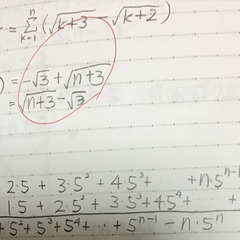 = Σ_{k=1}^{n} (√k+3 − √k+2)
) = −√3 + √n+3
= √n+3 − √3
2·5 + 3·5² + 4·5³ + ··· + n·5ⁿ⁻¹
1·5 + 2·5² + 3·5³ + 4·5⁴ + ···
+ 5² + 5³ + 5⁴ + ··· + 5ⁿ⁻¹ − n·5ⁿ